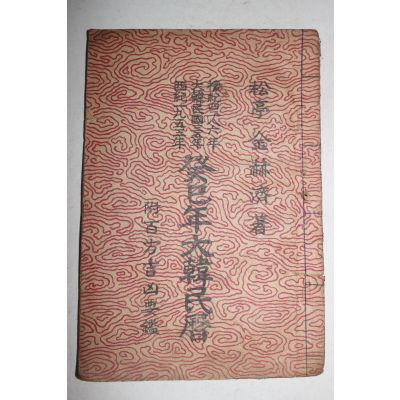 松亭 金赫濟 著
檀紀四二八六年
大韓民國三五年
西紀一九五三年
癸巳年大韓民曆
附百方吉凶要鑑